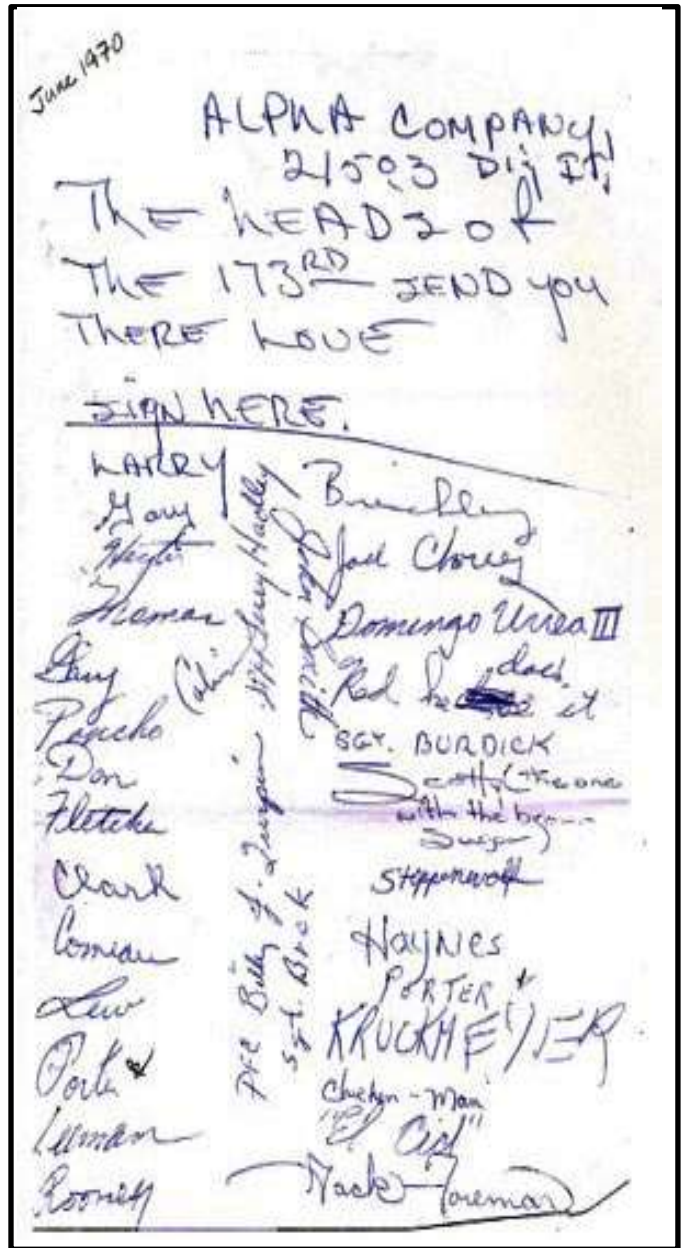 June 1970
ALPHA COMPANY
2/503 Dig It!
THE HEADS OF
THE 173RD SEND YOU
THERE LOVE
SIGN HERE.
LARRY
Gary
Hector
Thomas
Gary
Pancho
Don
Fletcher
Clark
Comeau
Lew
Porter
Luman
Rooney
Larry Hadley
PFC Billy J. Turpin
Sgt. Brock
Brinkley
Joel
Domingo Urrea III
Red he does it
SGT. BURDICK
Scotty (the one
with the
Steppenwolf
Haynes
PORTER
KRUCKMEYER
Chicken-Man
"El Cid"
Foreman